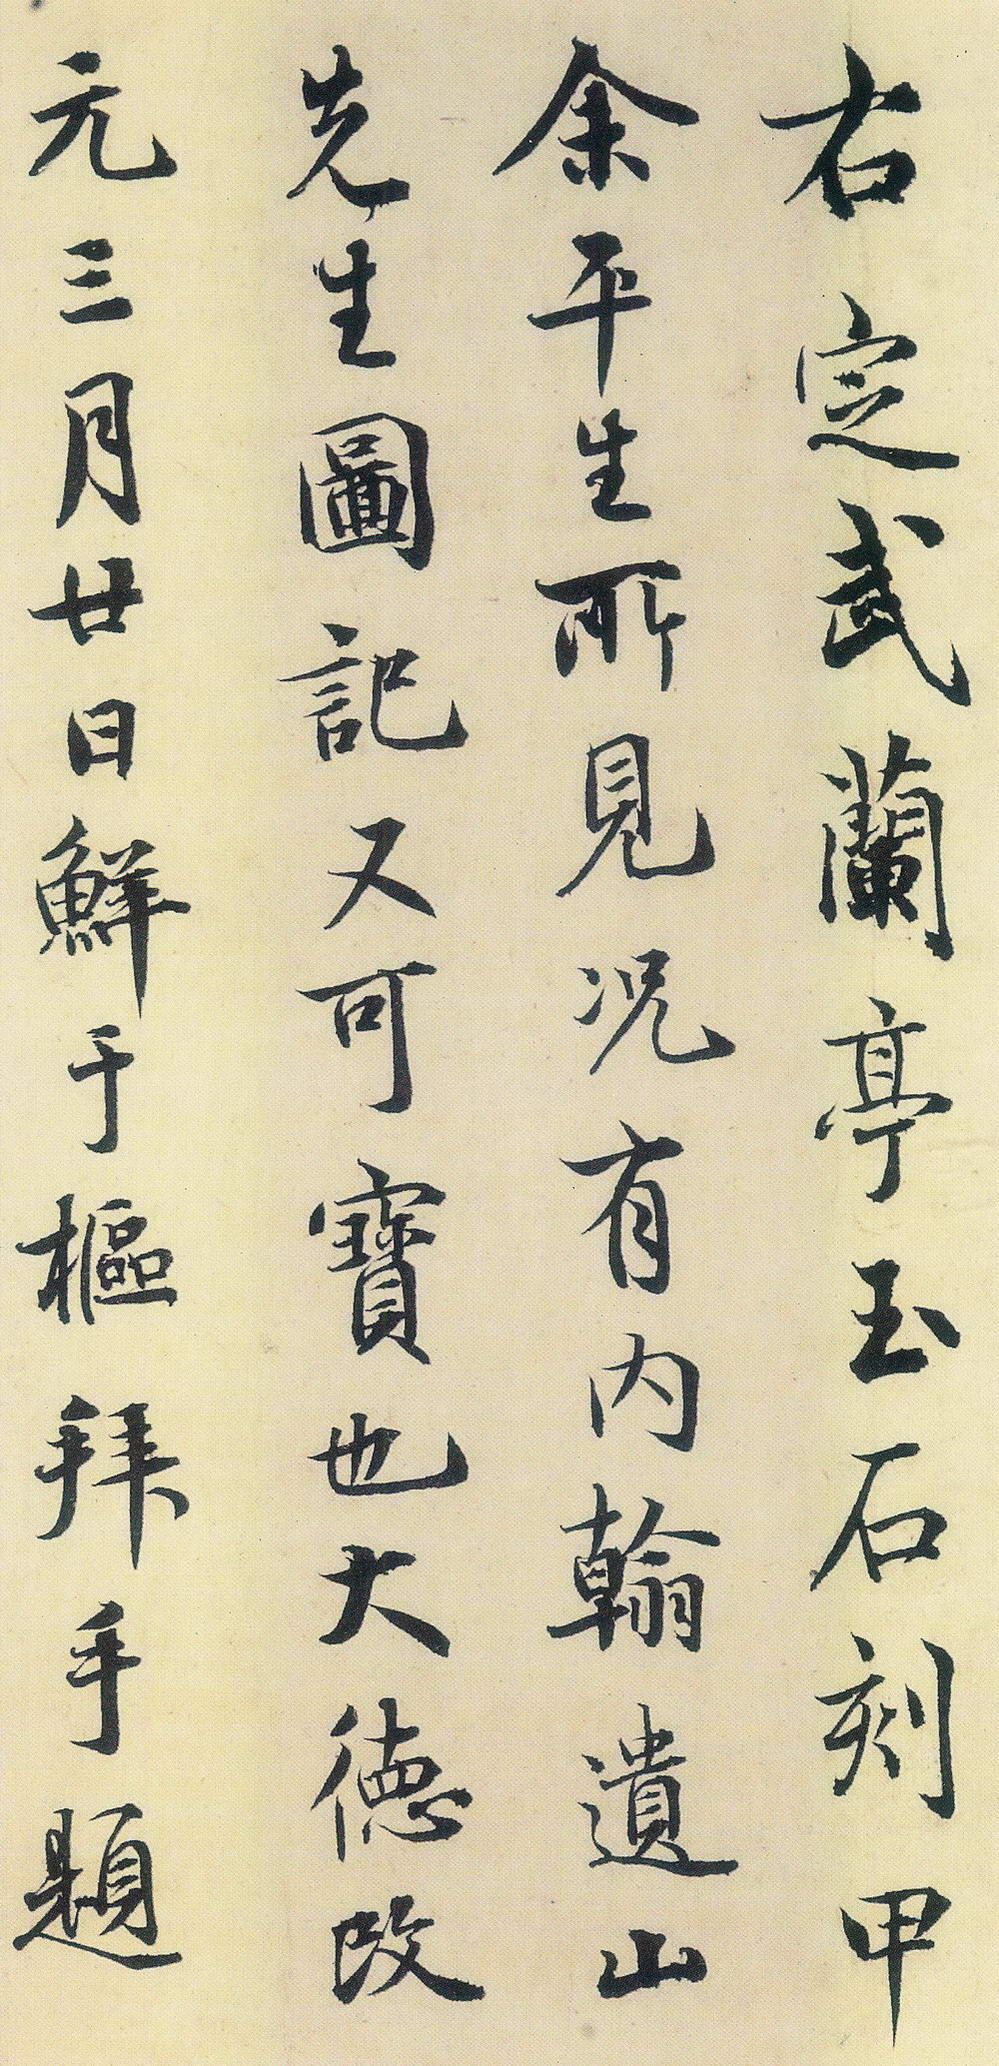 右定武蘭亭玉石刻甲
余平生所見况有内翰遺山
先生圖記又可寶也大德改
元三月廿日鮮于樞拜手題